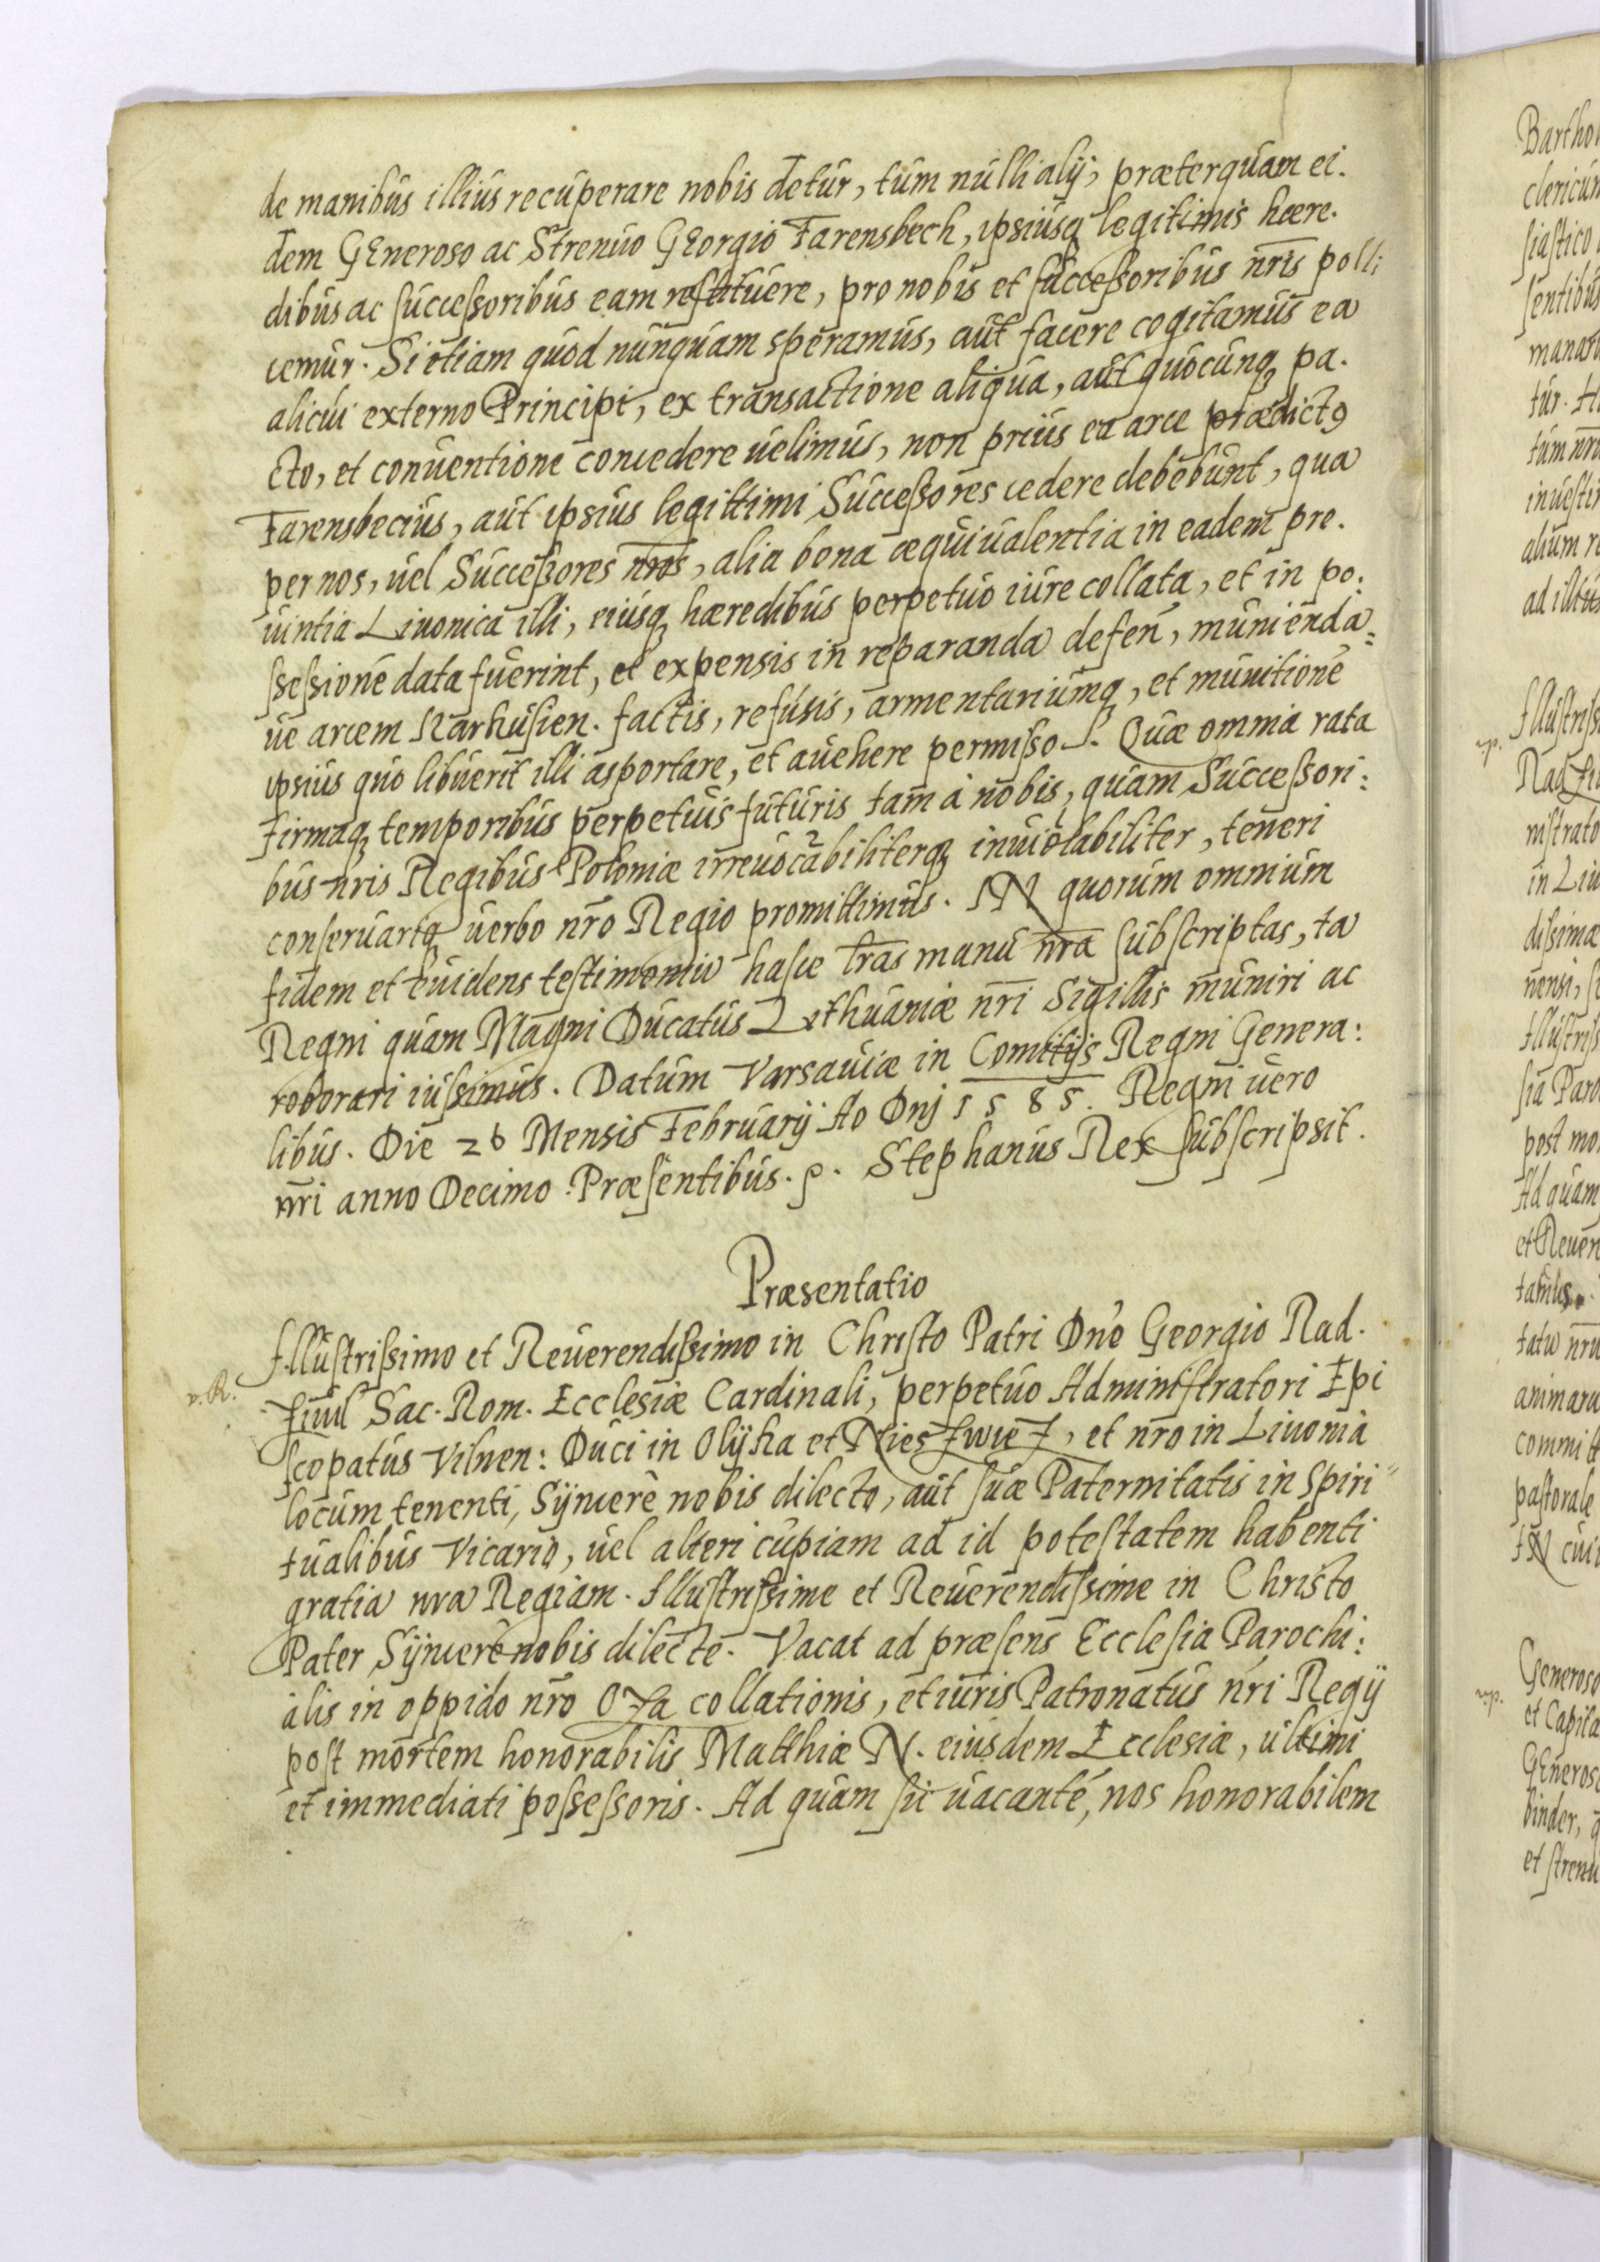 de manibus illius recuperare nobis detur, tum nulli alij, præterquam ei.
dem GEneroso ac Strenuo GEorgio Farensbech, ipsiusq̃ legitimis hære.
dibus ac successoribus eam restituere, pro nobis et successoribus nr̃is polli
cemur. Si etiam quod nunquam speramus, aut facere cogitamus ea
alicui externo Principi, ex transactione aliqua, aut quocunq̃ pa.
cto, et conuentione concedere uelimus, non prius ea arce prædictꝰ
Farensbecius, aut ipsius legittimi Successores cedere debebunt, qua
per nos, uel Successores nr̃os, alia bona æquiualentia in eadem pro.
uintia Liuonica illi, eiusq̃ hæredibus perpetuo iure collata, et in po:
ssessionẽ data fuerint, et expensis in reparanda defen̄, munienda:
ue arcem Karkusien. factis, refusis, armentariumq̃, et munitionẽ
ipsius quo libuerit illi asportare, et auehere permisso. Quæ omnia rata
firmaq̃ temporibus perpetuis futuris tam à nobis, quam Successori:
bus nr̃is Regibus Poloniæ irreuocabiliterq̃ inuiolabiliter, teneri
conseruariq̃ uerbo nr̃o Regio promittimus. IN quorum omnium
fidem et euidens testimoniũ hasce lr̃as manu nr̃a subscriptas, ta
Regni quam Magni Ducatus Lithuaniæ nr̃i Sigillis muniri ac
roborari iussimus. Datum Varsauiæ in Comitijs Regni Genera:
libus. Die 26 Mensis Februarij Ao Dnj 1585. Regni uero
nr̃i anno Decimo. Præsentibus. ꝑ. Stephanus Rex subscripsit.
Præsentatio
Illustrissimo et Reuerendissimo in Christo Patri Dnõ Georgio Rad.
ziuil Sac. Rom. Ecclesiæ Cardinali, perpetuo Administratori Epi
scopatus Vilnen: Duci in Olijka et Nieszwiez, et nr̃o in Liuonia
locum tenenti, Sijncerè nobis dilecto, aut suæ Paternitatis in Spiri
tualibus Vicario, uel alteri cupiam ad id potestatem habenti
gratiã nr̃a Regiam. Illustrissime et Reuerendissime in Christo
Pater Sijncerè nobis dilecte. Vacat ad præsens Ecclesia Parochi:
alis in oppido nr̃o Oza collationis, et iuris Patronatus nr̃i Regij
post mortem honorabilis Matthiæ N. eiusdem Ecclesiæ, ultimi
et immediati possessoris. Ad quam sic uacantẽ, nos honorabilem